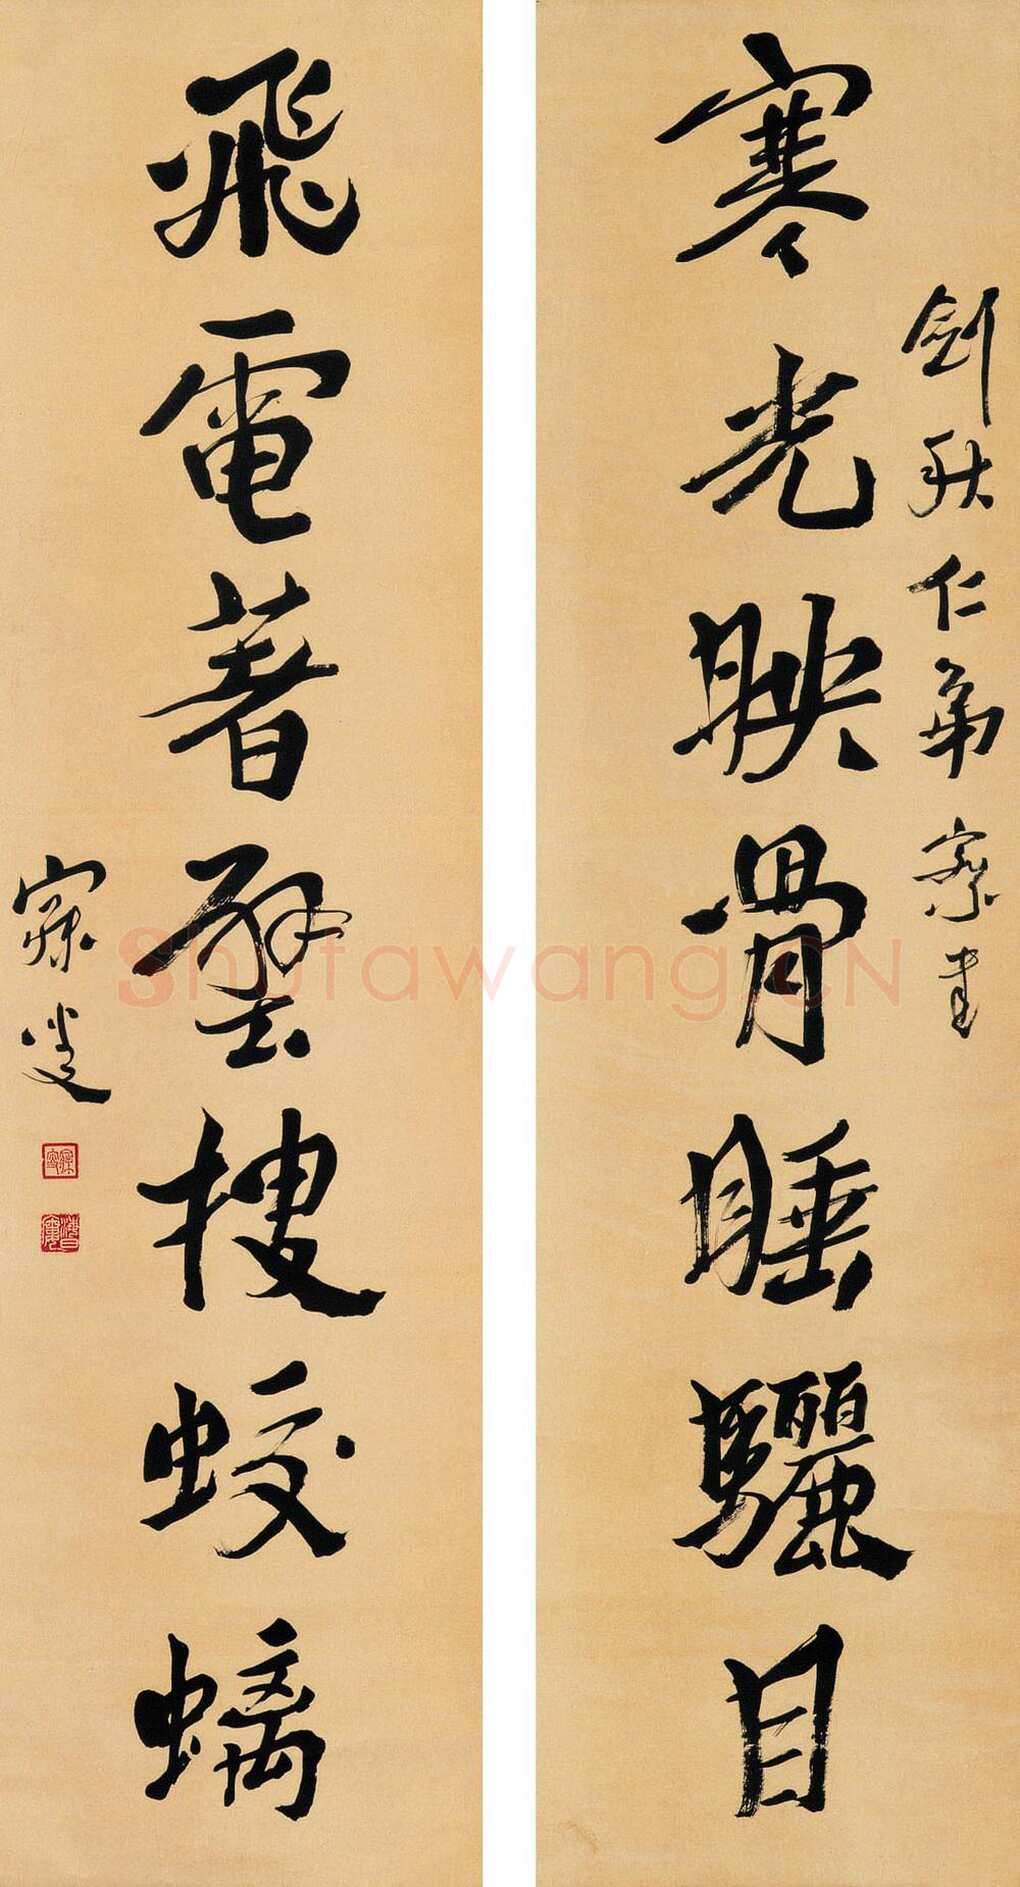 劍秋仁弟察書
寒光映骨睡驪目
飛電著壁搜蛟螭
寐叟
Shufawang.CN